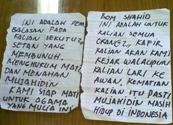 INI ADALAH PEM
BALASAN PADA
KALIAN SEKUTU2
SETAN YANG
MEMBUNUH,
MENGHUKUM MATI
DAN MENAHAN
MUJAHIDIN
KAMI SIAP MATI
UNTUK AGAMA
YANG MULIA INI
BOM SYAHID
INI ADALAH UNTUK
KALIAN SEMUA
ORANG2 KAFIR
KALIAN AKAN KAMI
KEJAR WALAUPUN
KALIAN LARI KE
AWAN, KEMATIAN
KALIAN ITU PASTI
MUJAHIDIN MASIH
HIDUP DI INDONESIA